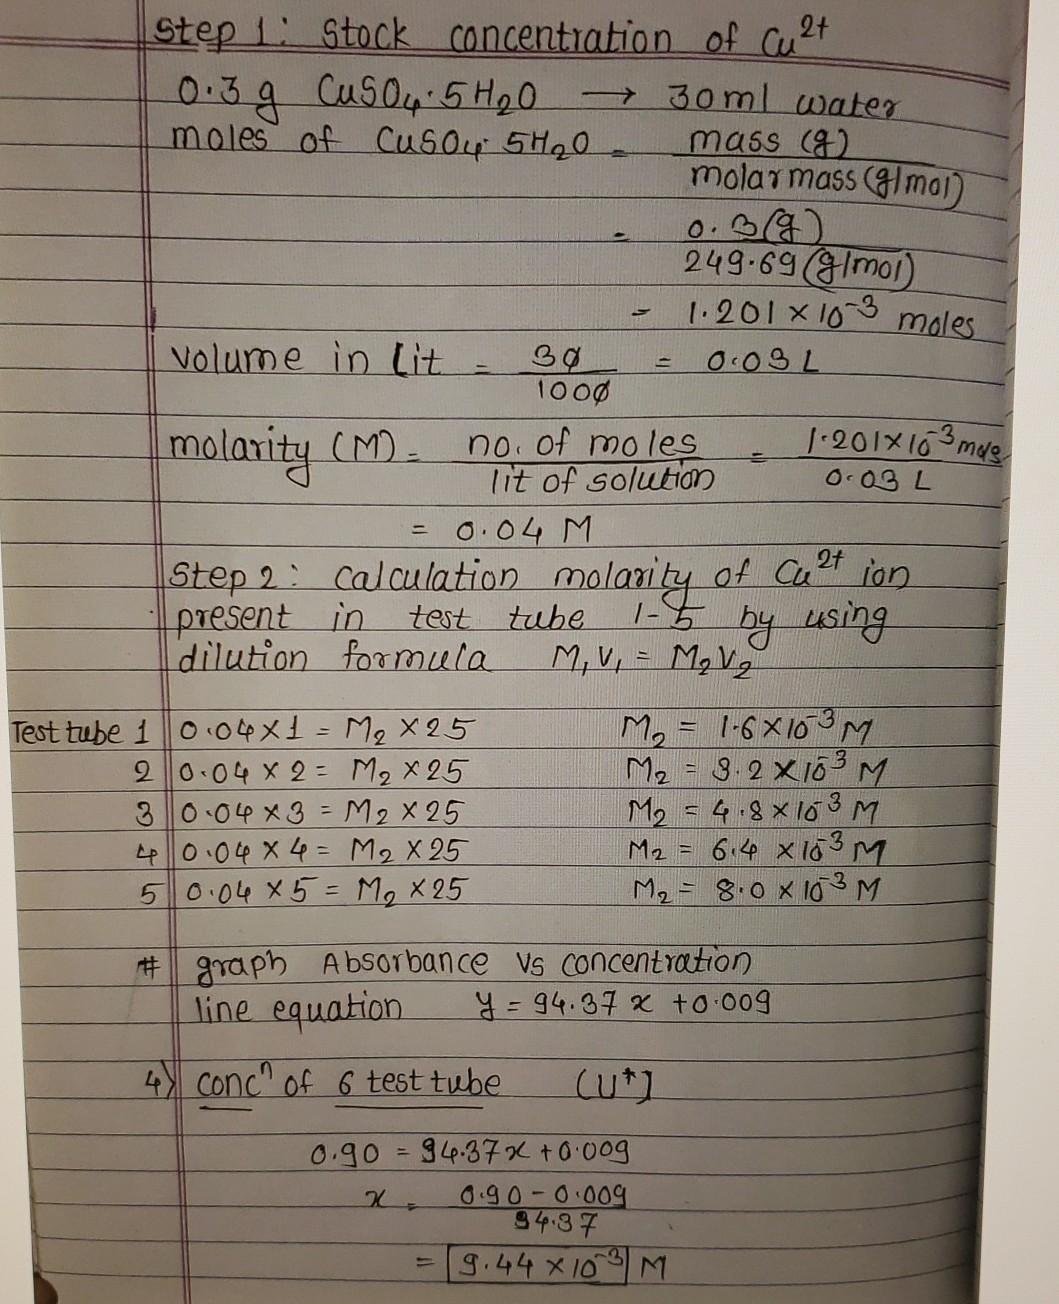 Step 1: Stock concentration of Cu²⁺
0.3 g CuSO₄·5H₂O → 30 ml water
moles of CuSO₄·5H₂O = mass (g)
molar mass (g/mol)
= 0.3 (g)
249.69 (g/mol)
= 1.201 × 10⁻³ moles
Volume in Lit = 30 = 0.03 L
1000
molarity (M) = no. of moles = 1.201×10⁻³ moles
lit of solution 0.03 L
= 0.04 M
Step 2: Calculation molarity of Cu²⁺ ion
present in test tube 1-5 by using
dilution formula M₁V₁ = M₂V₂
Test tube 1 0.04 × 1 = M₂ × 25 M₂ = 1.6 × 10⁻³ M
2 0.04 × 2 = M₂ × 25 M₂ = 3.2 × 10⁻³ M
3 0.04 × 3 = M₂ × 25 M₂ = 4.8 × 10⁻³ M
4 0.04 × 4 = M₂ × 25 M₂ = 6.4 × 10⁻³ M
5 0.04 × 5 = M₂ × 25 M₂ = 8.0 × 10⁻³ M
# graph Absorbance vs concentration
line equation y = 94.37 x + 0.009
4) concⁿ of 6 test tube (U⁺]
0.90 = 94.37x + 0.009
x = 0.90 - 0.009
94.37
= 9.44 × 10⁻³ M